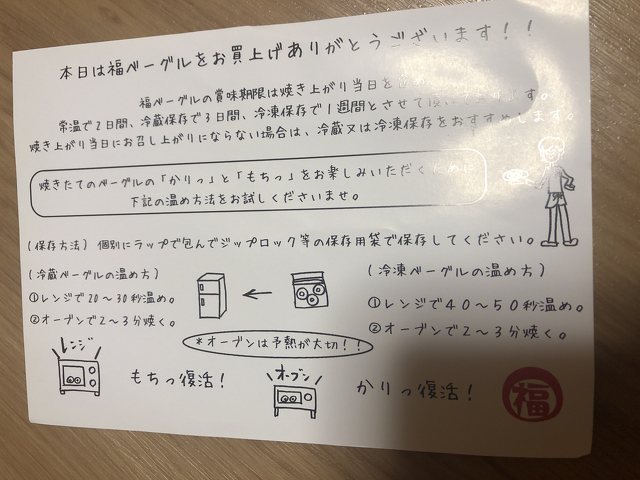 本日は福ベーグルをお買上げありがとうございます！！
福ベーグルの賞味期限は焼き上がり当日を含め
常温で2日間、冷蔵保存で3日間、冷凍保存で1週間とさせて頂いております。
焼き上がり当日にお召し上がりにならない場合は、冷蔵又は冷凍保存をおすすめします。
焼きたてのベーグルの「かりっ」と「もちっ」をお楽しみいただくために
下記の温め方法をお試しくださいませ。
(保存方法) 個別にラップで包んでジップロック等の保存用袋で保存してください。
(冷蔵ベーグルの温め方)
①レンジで20～30秒温め。
②オーブンで2～3分焼く。
(冷凍ベーグルの温め方)
①レンジで40～50秒温め。
②オーブンで2～3分焼く。
*オーブンは予熱が大切！！
レンジ
もちっ復活！
オーブン
かりっ復活！
福